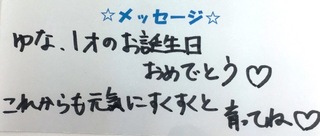 ☆メッセージ☆
ゆな、1才のお誕生日
おめでとう♡
これからも元気にすくすくと
育ってね♡